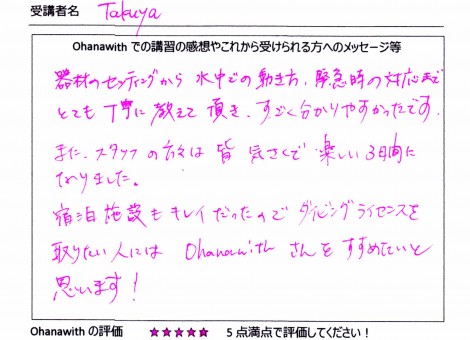 受講者名 Takuya
Ohanawith での講習の感想やこれから受けられる方へのメッセージ等
器材のセッティングから 水中での動き方、緊急時の対応まで
とても丁寧に教えて頂き、すごく分かりやすかったです。
また、スタッフの方々は 皆 気さくで 楽しい3日間に
なりました。
宿泊施設もキレイだったので ダイビングライセンスを
取りたい人には Ohanawith さんをすすめたいと
思います!
Ohanawith の評価 ★★★★★ 5 点満点で評価してください!